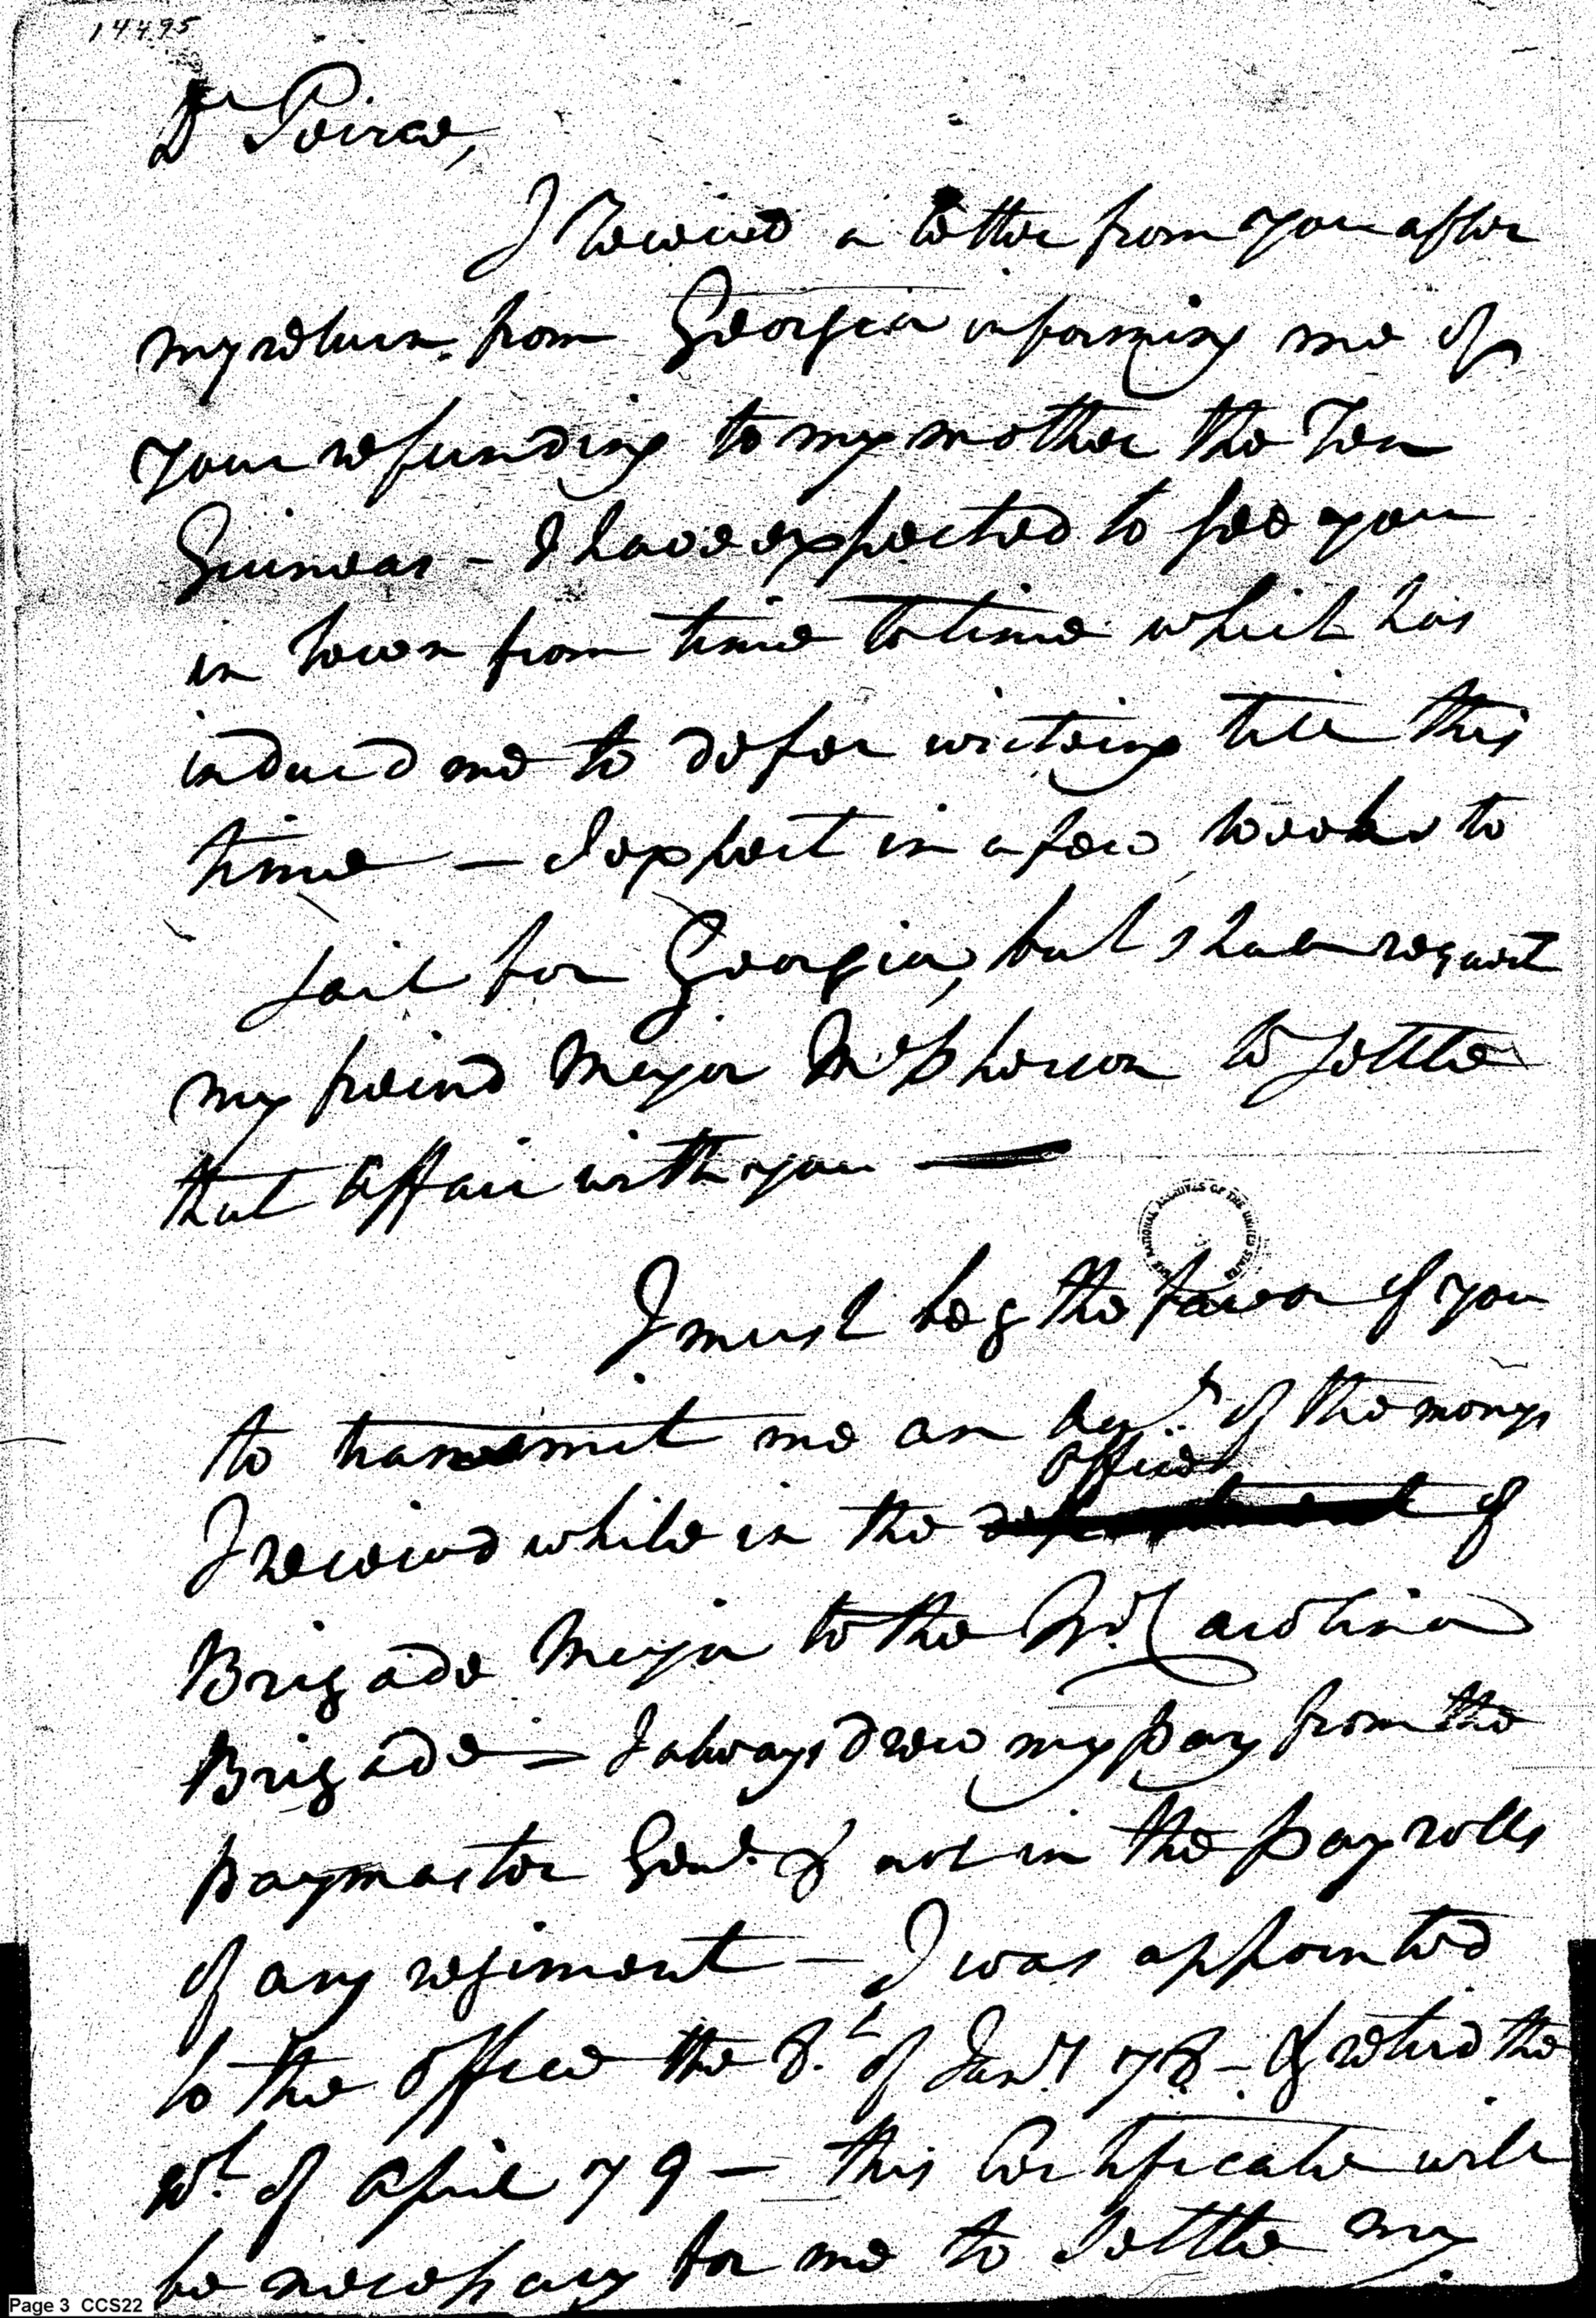 14495
Dr Peirce,
I Received a letter from you after
my return from Georgia informing me of
your refunding to my mother the Ten
Guineas - I have expected to see you
in town from time to time which has
induc'd me to defer writeing till this
time — I expect in a few weeks to
sail for Georgia, but shall request
my freind Major McPherson to settle
that affair with you —
NATIONAL ARCHIVES OF THE UNITED STATES
I must beg the favor of you
to transmit me an Acct. of the monys
office
I received while in the department of
Brigade Major to the No. Carolina
Brigade - I always drew my pay from the
paymaster Genl. & not in the payrolls
of any regiment — I was appointed
to the office the 8.th of Jany 78 - & retird the
of April 79 — this Certificate will
be necessary for me to settle my
Page 3 CCS22